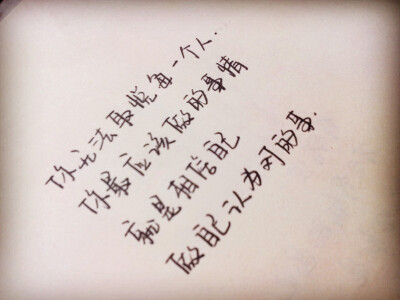 你无法取悦每一个人..
你最应该做的事情
就是相信自己
做自己认为对的事.